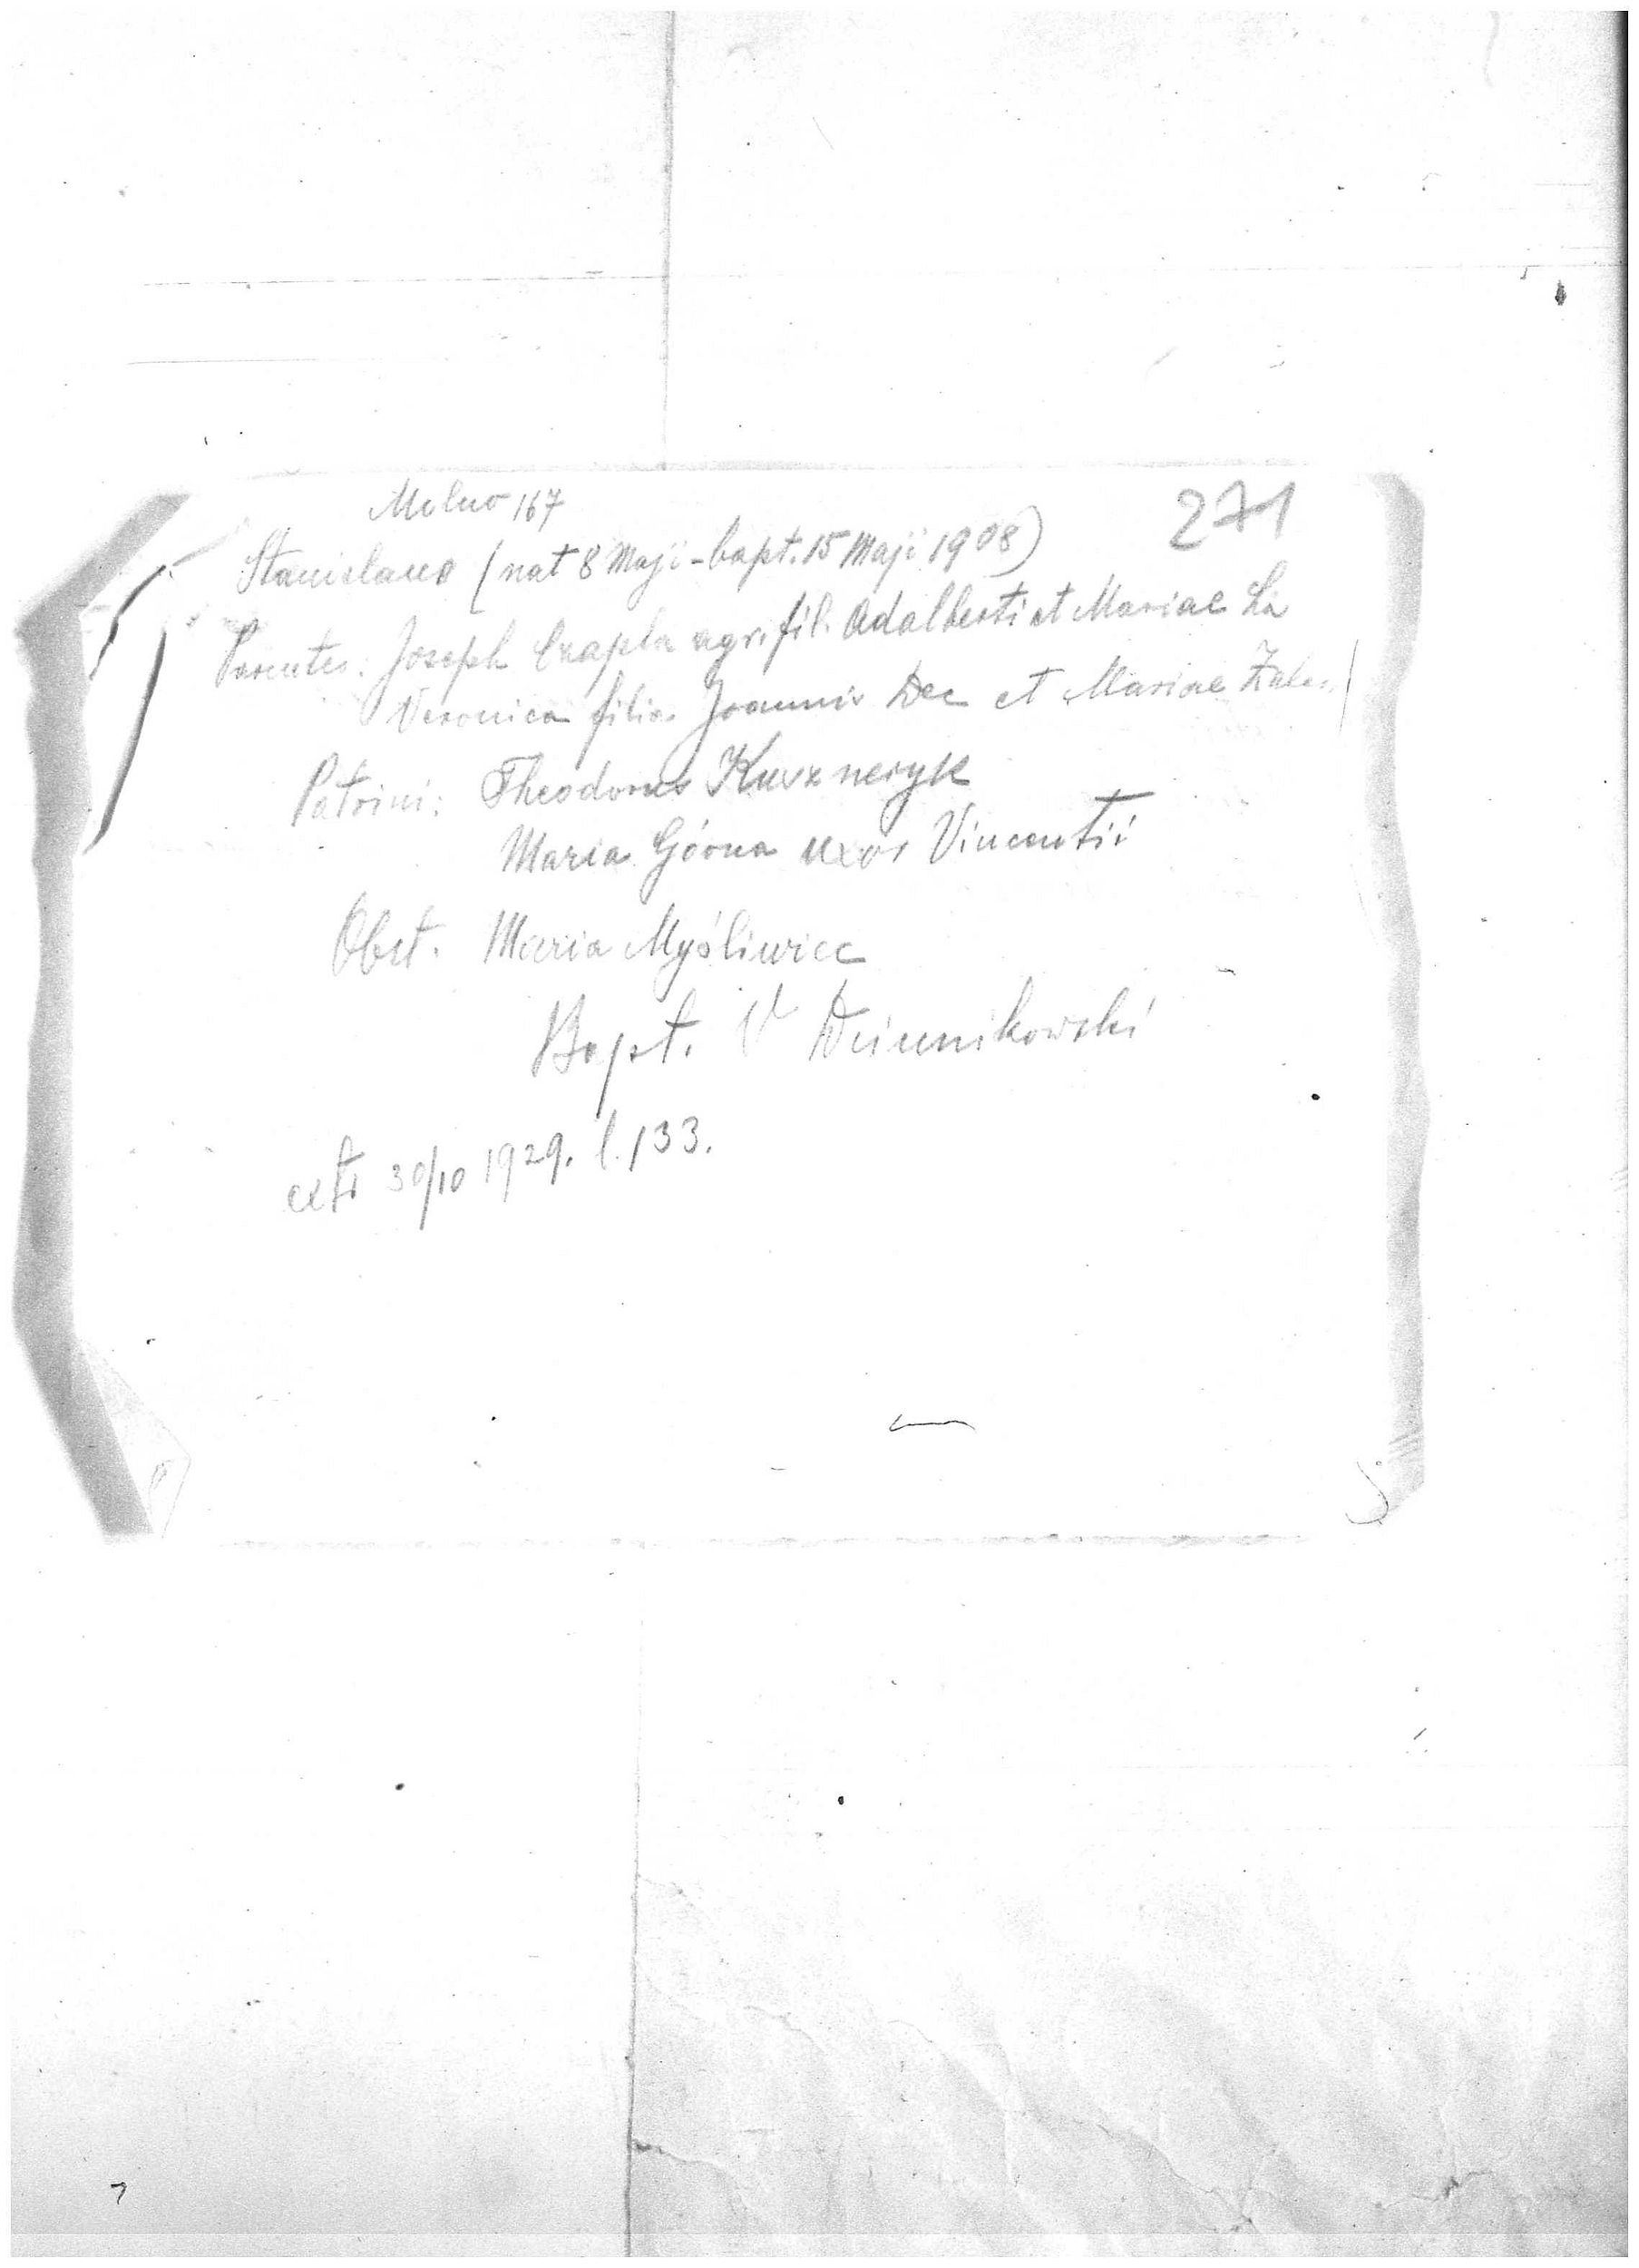 Molno 167
271
Stanislaus (nat 8 Maji - bapt. 15 Maji 1908)
Parentes: Joseph Czapla agr. fil. Adalberti et Mariae
Veronica filia Joannis Dec et Mariae
Patrini: Theodorus
Maria Górna uxor Vincentii
Obst. Maria Myśliwiec
Bapt. V
30/10 1929. l. 133.